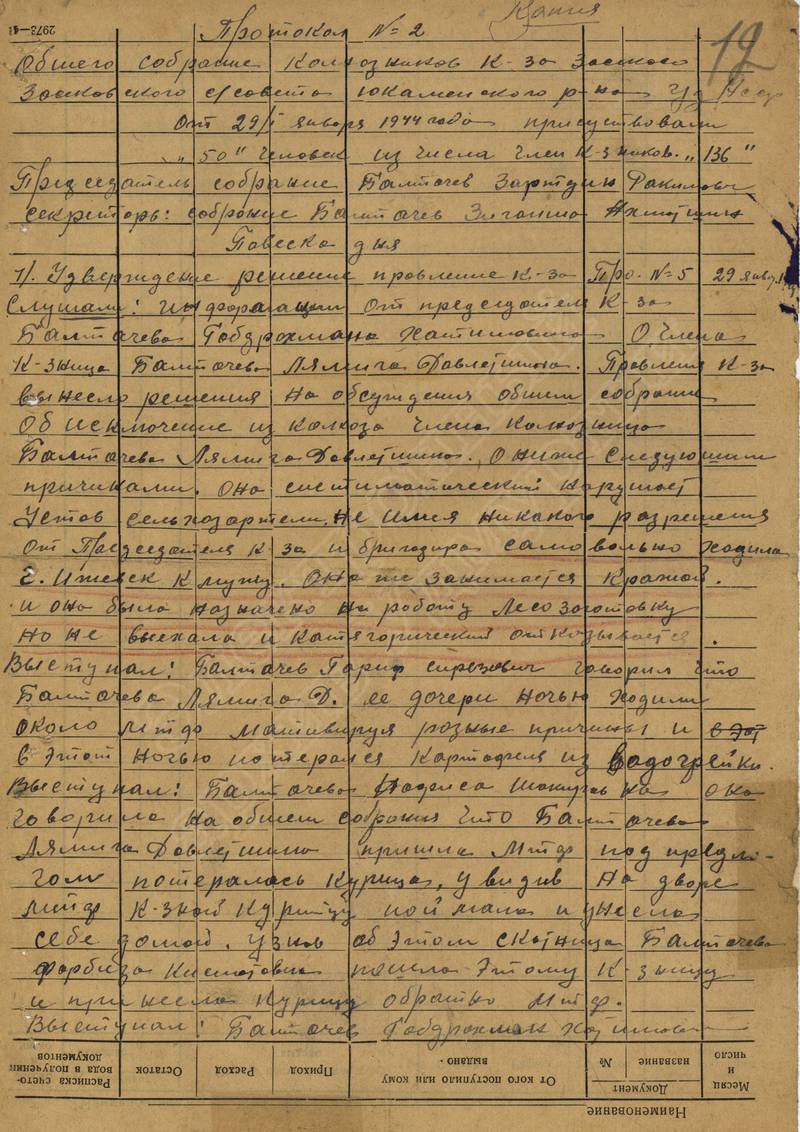 Копия
2973—41
Протокол №2
12
Общего собрание Колхозников К-за Засково
Засковского с/совета Юкаменского р-на Уд АССР
От 29/I января 1944 года присуствовали
„50" Человек из числа член К-зников. „136"
Председатель собрание Балтачев Зартдин Ракипович
секреторь: собрание Балтачев Зиганша
Повеска дня
1/. Удверждение решение провление К-за Про. №5 29 янвр.
Слушали! Информации от председателя К-за
Балтачева Габдрахмана Хатимовича О Члена
К-зница Балтачева Лямига Давлетшина. Правления К-за
вынесло решения На обсуждения общем собрании
Об исключение из колхоза члена колхозница
Балтачева Лямига Давлетшина. О ниже следующим
причинами. Она систиматический нарушает
Устав сельхозартели, не имея никакого разрешения
От Председателя К-за и бригадира само вольно ходила
г. Ижевск К мужу. Она же занимается кражой.
и она была назначено на работу Лесозаготовку
но не выехала и категорический отказывается.
Выступал! Балтачев Гариф Сирозович говорил что
Балтачева Лямига Д. ее дочери ночью ходили
около мтф мативируя розные причины и в эт
в этот ночью потерался картофеля из водогрейки.
Выступал! Балтачева Нафиса она
говорила на общем собрания что Балтачева
Лямига Давлетшина пришла Мтф под предло-
гом потералась курица, увидив На дворе
мтф К-зной курицу поймала и унесла
себе домой. Узнав об этом скотница Балтачева
Фарбиза пошла этому К-зницу
и принесла курицу обратно Мтф.
Выступал! Балтачев Габдрахман Хатимович
Расписка счето-
вода в получении
документов
Остаток
Расход
Приход
От кого поступило или кому
выдано
№
название
Документ
Месяц
и
число
Наименование